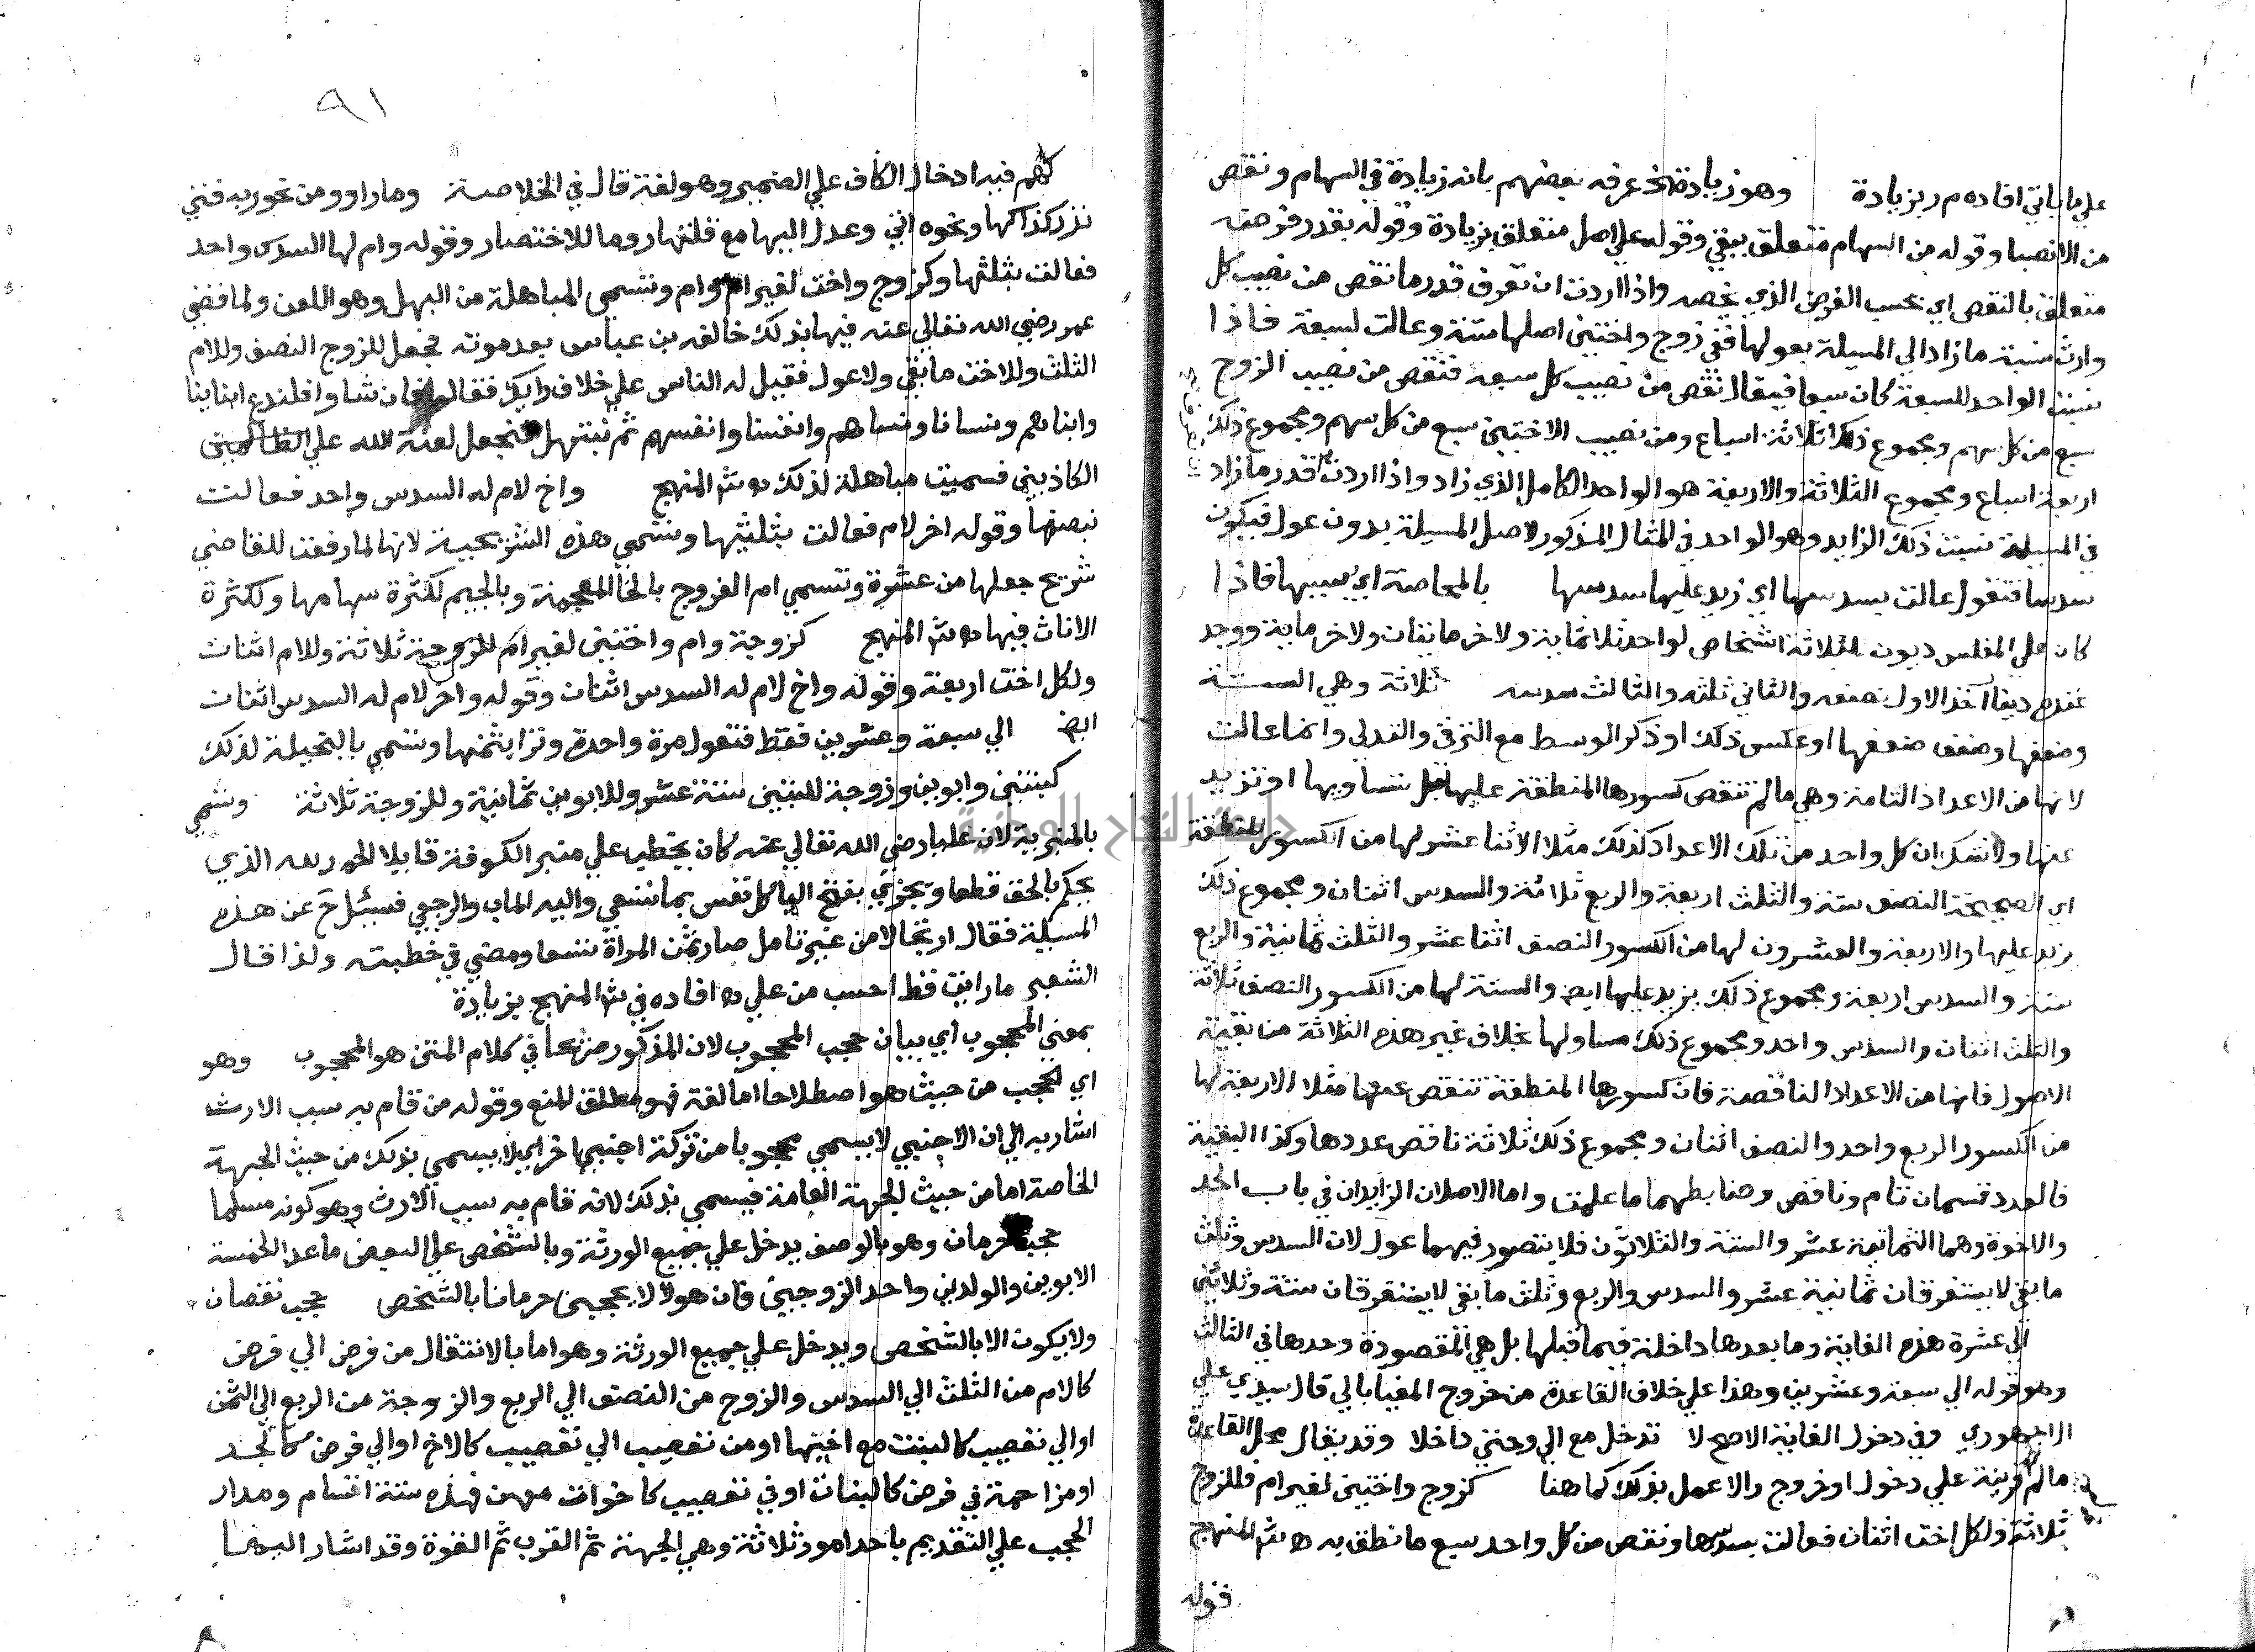 علي ما ياتي افاده م ر بزيادة وهو زيادة الخ عرفه بعضهم بانه زيادة في السهام ونقص
من الانصبا وقوله من السهام متعلق ببقي وقوله علي اصل متعلق بزيادة وقوله بقدر فرضه
متعلق بالنقص اي بحسب الفرض الذي يخصه واذا اردت ان تعرف قدر ما نقص من نصيب كل
وارث نسبة ما زاد الي المسيلة بعولها ففي زوج واختين اصلها ستة وعالت لسبعة فاذا
نسبت الواحد للسبعة كان سبعا فيقال نقص من نصيب كل سبعه فنقص من نصيب الزوج
سبع من كل سهم ومجموع ذلك ثلاثة اسباع ومن نصيب الاختين سبع من كل سهم ومجموع ذلك
اربعة اسباع ومجموع الثلاثة والاربعة هو الواحد الكامل الذي زاد واذا اردت قدر ما زاد
في المسيلة نسبت ذلك الزايد وهو الواحد في المثال المذكور لاصل المسيلة بدون عول فيكون
سدسا فتقول عالت بسدسها اي زيد عليها سدسها بالمحاصة اي بسببها فاذا
كان علي المفلس ديون لثلاثة اشخاص لواحد ثلاثماية ولاخر مايتان ولاخر ماية ووجد
عنده اخذ الاول نصفه والثاني ثلثه والثالث سدسه ثلاثة وهي الستة
وضعفها وضعف ضعفها او عكس ذلك او ذكر الوسط مع الترقي والتدلي وانما عالت
لانها من الاعداد التامة وهي ما لم تنقص كسورها المنطقة عليها بل تساويها او تزيد
عنها ولا شك ان كل واحد من تلك الاعداد كذلك مثلا الاثنا عشر لها من الكسور المنطقة
اي الصحيحة النصف ستة والثلث اربعة والربع ثلاثة والسدس اثنان ومجموع ذلك
يزيد عليها والاربعة والعشرون لها من الكسور النصف اثنا عشر والثلث ثمانية والربع
ستة والسدس اربعة ومجموع ذلك يزيد عليها ايضا والستة لها من الكسور النصف ثلاثة
والثلث اثنان والسدس واحد ومجموع ذلك مساو لها بخلاف غير هذه الثلاثة من بقية
الاصول فانها من الاعداد الناقصة فان كسورها المنطقة تنقص عنها مثلا الاربعة لها
من الكسور الربع واحد والنصف اثنان ومجموع ذلك ثلاثة ناقص عددها وكذا البقية
فالعدد قسمان تام وناقص وضابطهما ما علمت واما الاصلان الزايدان في باب الجد
والاخوة وهما الثمانية عشر والستة والثلاثون فلا يتصور فيهما عول لان السدس وثلث
ما بقي لا يستغرقان ثمانية عشر والسدس والربع وثلث ما بقي لا يستغرقان ستة وثلاثين
الي عشرة هذه الغاية وما بعدها داخلة فيما قبلها بل هي المقصودة وحدها في الثالث
وهو قوله الي سبعة وعشرين وهذا علي خلاف القاعدة من خروج المغيا بالي قال سيدي علي
الاجهوري وفي دخول الغاية الاصح لا تدخل مع الي وحتي داخلا وقد يقال محل القاعدة
ما لم قرينة علي دخول او خروج والا عمل بذلك كما هنا كزوج واختين لغير ام فللزوج
ثلاثة ولكل اخت اثنان فعالت بسدسها ونقص من كل واحد سبع ما نطق به ه ش المنهج
قوله
٩١
كهم فيه ادخال الكاف علي الضمير وهو لغة قال في الخلاصة وما راوو ومن نحو ربه فتي
نزر كذا كها ونحوه اتي وعدل اليها مع قلتها روما للاختصار وقوله وام لها السدس واحد
فعالت بثلثها وكزوج واخت لغير ام وام وتسمي المباهلة من البهل وهو اللعن ولما قضي
عمر رضي الله تعالي عنه فيها بذلك خالفه بن عباس بعد موته فجعل للزوج النصف وللام
الثلث وللاخت ما بقي ولا عول فقيل له الناس علي خلاف رايك فقال فان شاوا فلندع ابناينا
وابناهم ونسانا ونساهم وانفسنا وانفسهم ثم نبتهل فنجعل لعنة الله علي الظالمين
الكاذبين فسميت مباهلة لذلك ه ش المنهج واخ لام له السدس واحد فعالت
بنصفها وقوله اخر لام فعالت بثلثيها وتسمي هذه الشريحية لانها لما رفعت للقاضي
شريح جعلها من عشرة وتسمي ام الفروج بالخا المعجمة وبالجيم لكثرة سهامها ولكثرة
الاناث فيها ه ش المنهج كزوجة وام واختين لغير ام للزوجة ثلاثة وللام اثنان
ولكل اخت اربعة وقوله واخ لام له السدس اثنان وقوله واخر لام له السدس اثنان
ايضا الي سبعة وعشرين فقط فتعول مرة واحدة وترا بثمنها وتسمي بالبخيلة لذلك
كبنتين وابوين وزوجة للبنتين ستة عشر وللابوين ثمانية وللزوجة ثلاثة وتسمي
بالمنبرية لان عليا رضي الله تعالي عنه كان يخطب علي منبر الكوفة قايلا الحمد لله الذي
يحكم بالحق قطعا ويجزي بفتح اليا كل نفس بما تسعي واليه الماب والرجعي فسيل ح عن هذه
المسيلة فقال ارتجالا من غير تامل صار ثمن المراة تسعا ومضي في خطبته ولذا قال
الشعبي ما رايت قط احسب من علي ه افاده في ش المنهج بزيادة
بمعني المحجوب اي بيان حجب المحجوب لان المذكور صريحا في كلام المتن هو المحجوب وهو
اي الحجب من حيث هو اصطلاحا اما لغة فهو مطلق المنع وقوله من قام به سبب الارث
اشار به الي ان الاجنبي لا يسمي محجوبا من تركة اجنبي اخر اي لا يسمي بذلك من حيث الجهة
الخاصة اما من حيث الجهة العامة فيسمي بذلك لانه قام به سبب الارث وهو كونه مسلما
حجب حرمان وهو بالوصف يدخل علي جميع الورثة وبالشخص علي البعض ما عدا الخمسة
الابوين والولدين واحد الزوجين فان هولا لا يحجبون حرمانا بالشخص حجب نقصان
ولا يكون الا بالشخص ويدخل علي جميع الورثة وهو اما بالانتقال من فرض الي فرض
كالام من الثلث الي السدس والزوج من النصف الي الربع والزوجة من الربع الي الثمن
او الي تعصيب كالبنت مع اخيها او من تعصيب الي تعصيب كالاخ او الي فرض كالجد
او مزاحمة في فرض كالبنات او في تعصيب كاخوات معهن فهذه ستة اقسام ومدار
الحجب علي التقديم باحد امور ثلاثة وهي الجهة ثم القرب ثم القوة وقد اشار اليها